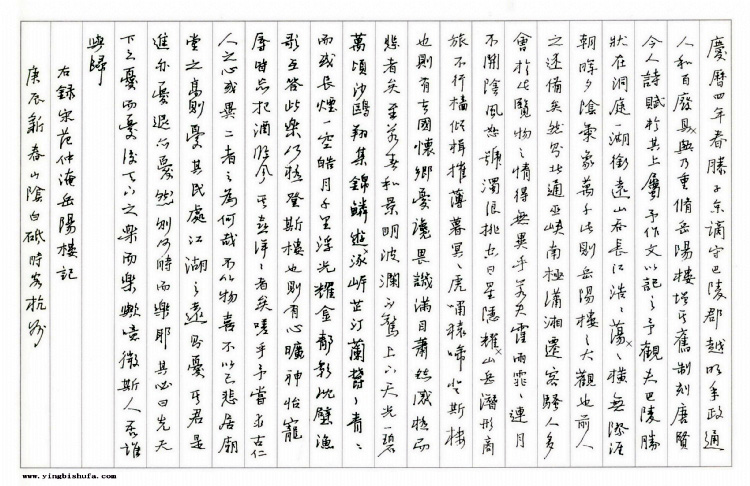 慶曆四年春滕子京謫守巴陵郡越明年政通
人和百廢具興乃重脩岳陽樓增其舊制刻唐賢
今人詩賦於其上屬予作文以記之予觀夫巴陵勝
狀在洞庭一湖銜遠山吞長江浩〻蕩〻橫無際涯
朝暉夕陰氣象萬千此則岳陽樓之大觀也前人
之述備矣然則北通巫峽南極瀟湘遷客騷人多
會於此覽物之情得無異乎若夫霪雨霏〻連月
不開陰風怒號濁浪排空日星隱耀山岳潛形商
旅不行檣傾楫摧薄暮冥〻虎嘯猿啼登斯樓
也則有去國懷鄉憂讒畏譏滿目蕭然感極而
悲者矣至若春和景明波瀾不驚上下天光一碧
萬頃沙鷗翔集錦鱗游泳岸芷汀蘭鬱〻青〻
而或長煙一空皓月千里浮光耀金靜影沈璧漁
歌互答此樂何極登斯樓也則有心曠神怡寵
辱皆忘把酒臨風其喜洋〻者矣嗟乎予嘗求古仁
人之心或異二者之為何哉不以物喜不以己悲居廟
堂之高則憂其民處江湖之遠則憂其君是
進亦憂退亦憂然則何時而樂耶其必曰先天
下之憂而憂後天下之樂而樂歟噫微斯人吾誰
與歸
右錄宋范仲淹岳陽樓記
庚辰新春山陰白砥時客杭州
www.yingbishufa.com